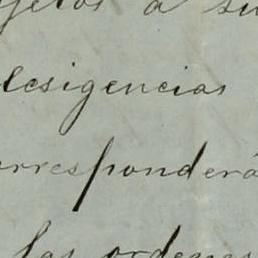 jetos a su
desigencias
orresponderá
las ordenes